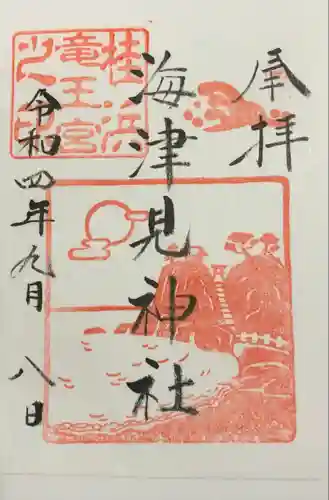 承拝
海津見神社
令和四年九月八日
桂浜
竜王宮